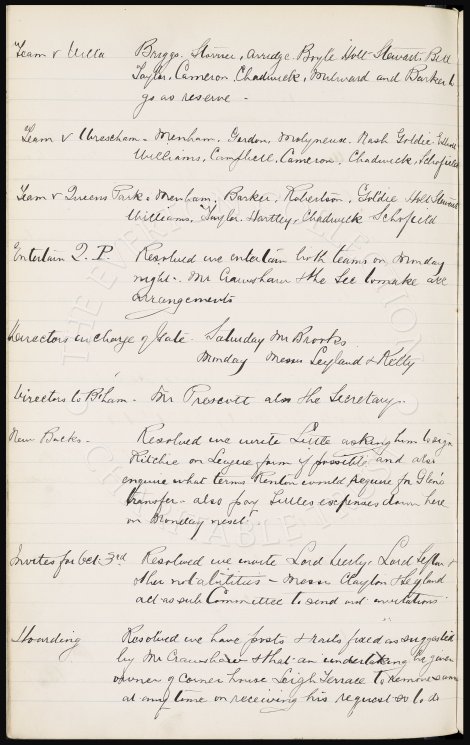 Team v Villa Briggs. Storrier, Arridge, Boyle Holt Stewart, Bell
Taylor, Cameron Chadwick, Milward and Barker to
go as reserve -
Team v Wrexham - Menham, Gordon, Molyneux. Nash Goldie Elliott
Williams, Campbell, Cameron, Chadwick, Schofield
Team v Queens Park. Menham, Barker, Robertson, Goldie Holt Stewart
Williams, Taylor. Hartley. Chadwick Schofield
Entertain Q. P. Resolved we entertain both teams on Monday
night. Mr Crawshaw & the Sec to make all
arrangements
Directors in charge of Gate. Saturday Mr Brooks
Monday Messrs Leyland & Kelly
Directors to B'ham - Mr Prescott also the Secretary -
New Backs - Resolved we write Little asking him to sign
Ritchie on League form if possible and also
enquire what terms Renton would require for Glen's
transfer - also pay Littles expenses down here
on Monday next.
Invites for Oct. 3rd Resolved we invite Lord Derby, Lord Sefton &
other notabilities - Messrs Clayton & Leyland
act as sub Committee to send out invitations
Hoarding Resolved we have posts & rails fixed as suggested
by Mr Crawshaw & that an undertaking be given
owner of corner house Leigh Terrace to remove same
at any time on receiving his request so to do
THE EVERTON COLLECTION
CHARITABLE TRUST